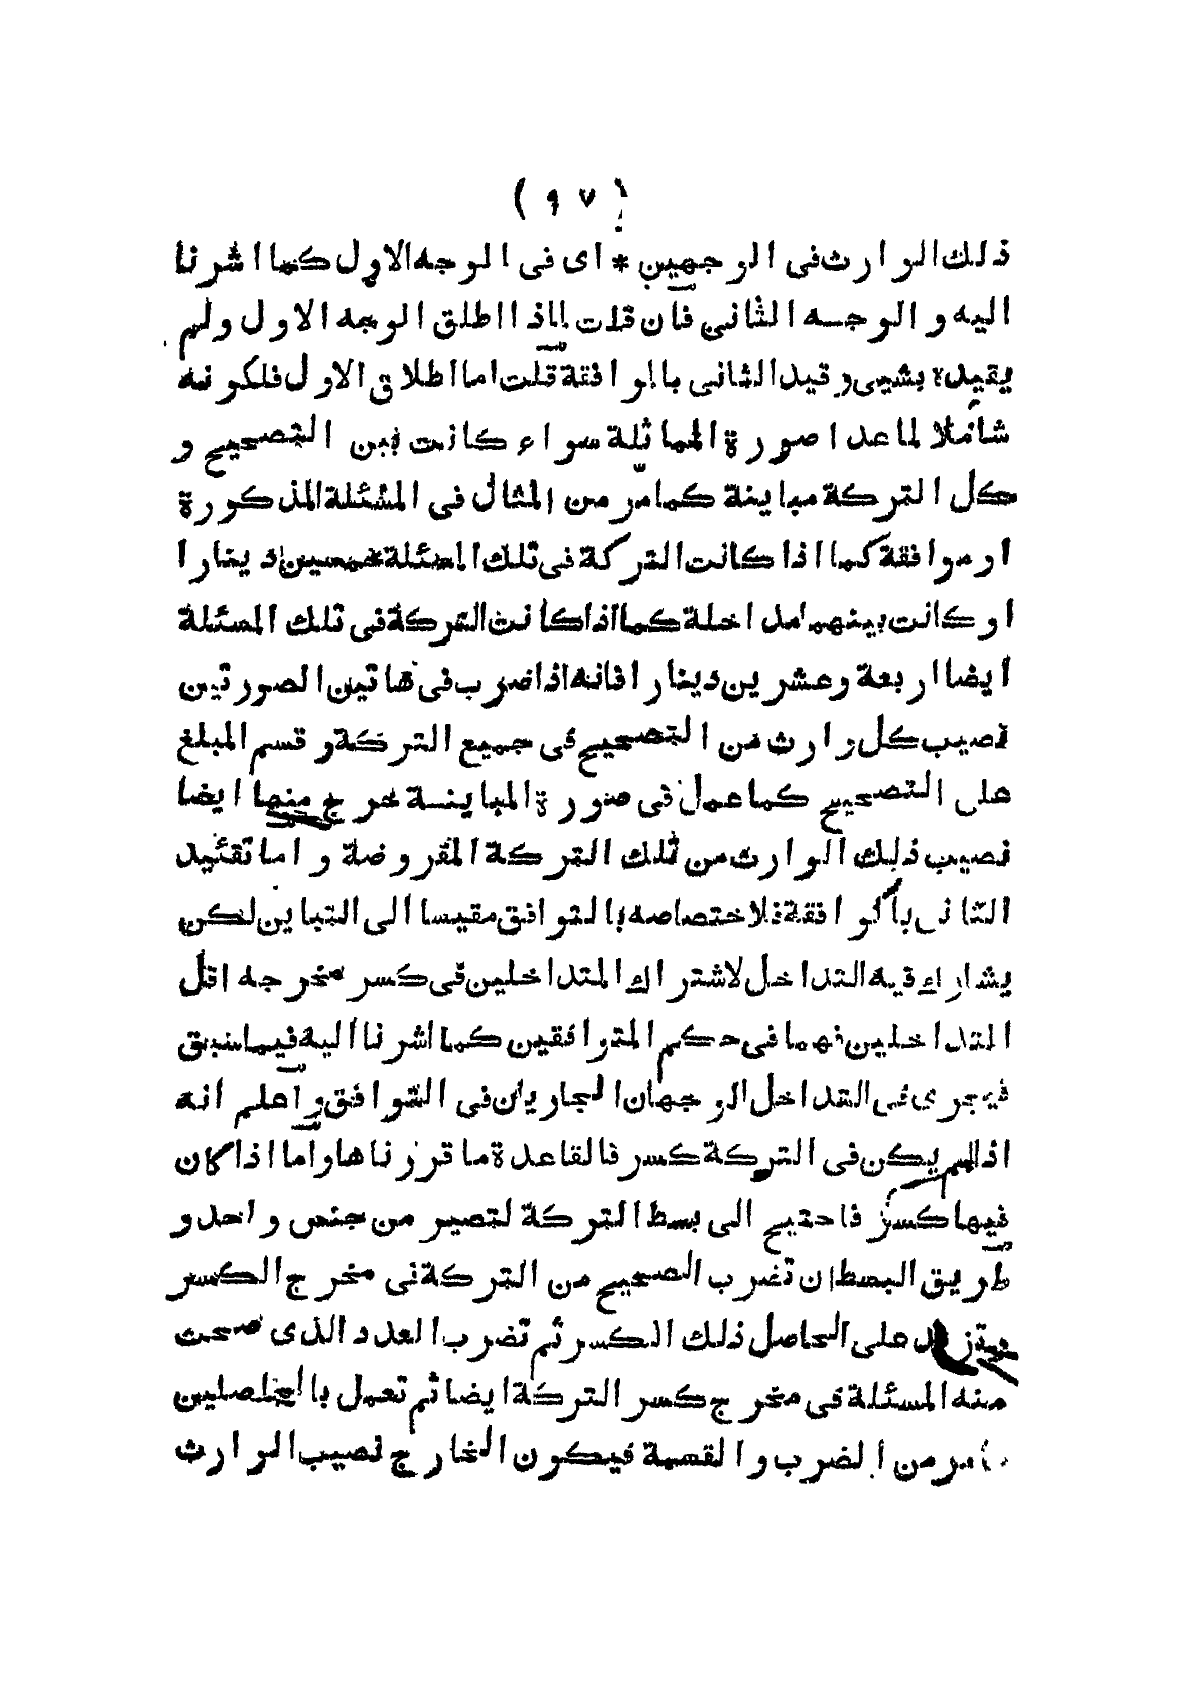 ( ٩٧ )
ذلك الوارث فى الوجهين * اى فى الوجه الاول كما اشرنا
اليه و الوجه الثانى فان قلت لماذا اطلق الوجه الاول ولم
يقيده بشيى وقيد الثانى بالموافقة قلت اما اطلاق الاول فلكونه
شاملا لما عدا صورة المماثلة سواء كانت بين التصحيح و
كل التركة مباينة كما مر من المثال فى المسئلة المذكورة
او موافقة كما اذا كانت التركة فى تلك المسئلة خمسين دينارا
او كانت بينهما مداخلة كما اذا كانت التركة فى تلك المسئلة
ايضا اربعة وعشرين دينارا فانه اذا ضرب فى هاتين الصورتين
نصيب كل وارث من التصحيح فى جميع التركة و قسم المبلغ
على التصحيح كما عمل فى صورة المباينة خرج منها ايضا
نصيب ذلك الوارث من تلك التركة المفروضة و اما تقئيد
الثانى بالموافقة فلاختصاصه بالتوافق مقيسا الى التباين لكن
يشارك فيه التداخل لاشتراك المتداخلين فى كسر مخرجه اقل
المتداخلين فهما فى حكم المتوافقين كما اشرنا اليه فيما سبق
فيجرى فى التداخل الوجهان الجاريان فى التوافق واعلم انه
اذا لم يكن فى التركة كسر فالقاعدة ما قررناها واما اذا كان
فيها كسر فاحتيج الى بسط التركة لتصير من جنس واحد و
طريق البسط ان تضرب الصحيح من التركة فى مخرج الكسر
وتزيد على الحاصل ذلك الكسر ثم تضرب العدد الذى صحت
منه المسئلة فى مخرج كسر التركة ايضا ثم تعمل بالحاصلين
ما مر من الضرب و القسمة فيكون الخارج نصيب الوارث